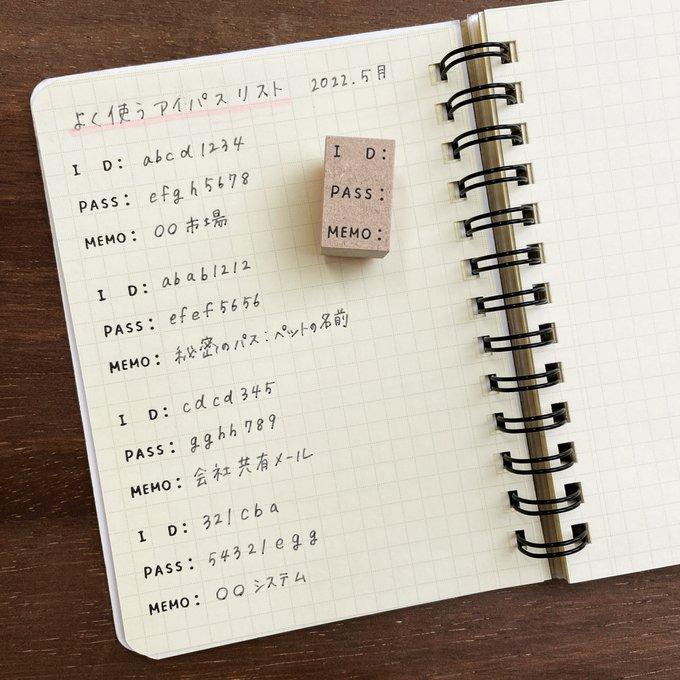 よく使うアイパスリスト 2022.5月
I D: abcd1234
PASS: efgh5678
MEMO: 〇〇市場
I D: abab1212
PASS: efef5656
MEMO: 秘密のパス:ペットの名前
I D: cdcd345
PASS: gghh789
MEMO: 会社共有メール
I D: 321cba
PASS: 54321egg
MEMO: 〇〇システム
I D:
PASS:
MEMO: